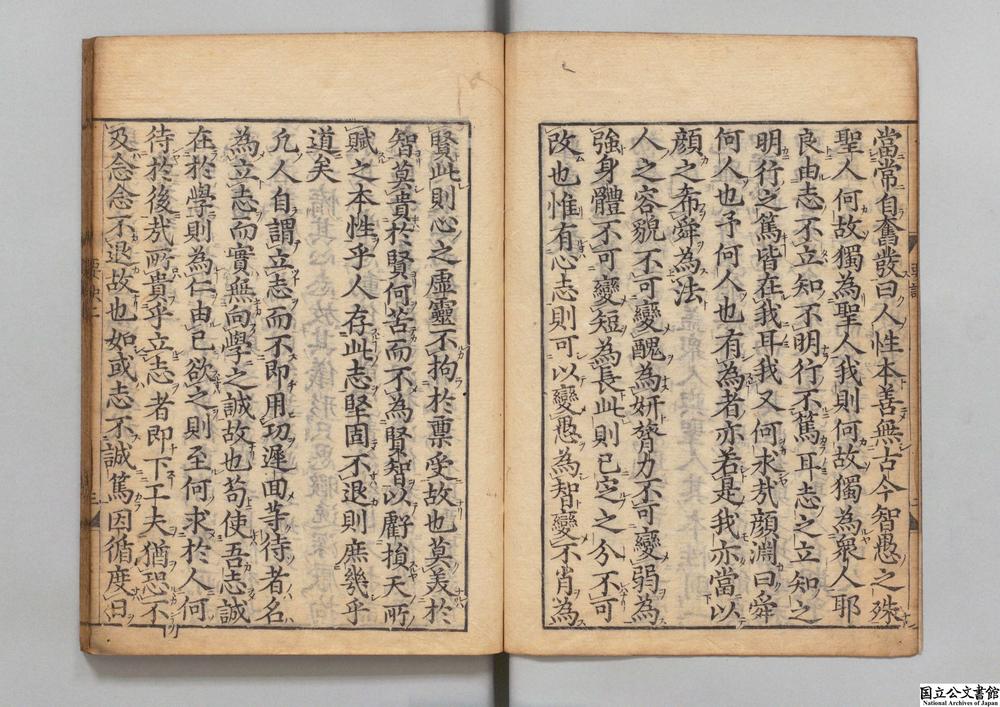 當常自奮發曰人性本善無古今智愚之殊
聖人何故獨為聖人我則何故獨為衆人耶
良由志不立知不明行不篤耳志之立知之
明行之篤皆在我耳我又何求哉顔淵曰舜
何人也予何人也有為者亦若是我亦當以
顔之希舜為法
人之容貌不可變醜為妍膂力不可變弱為
強身體不可變短為長此則已定之分不可
改也惟有心志則可以變愚為智變不肖為
賢此則心之虛靈不拘於稟受故也莫美於
智莫貴於賢何苦而不為賢智以虧損天所
賦之本性乎人存此志堅固不退則庶幾乎
道矣
凢人自謂立志而不即用功遲囬等待者名
為立志而實無向學之誠故也苟使吾志誠
在於學則為仁由己欲之則至何求於人何
待於後哉所貴乎立志者即下工夫猶恐不
及念念不退故也如或志不誠篤因循度日
国立公文書館
National Archives of Japan